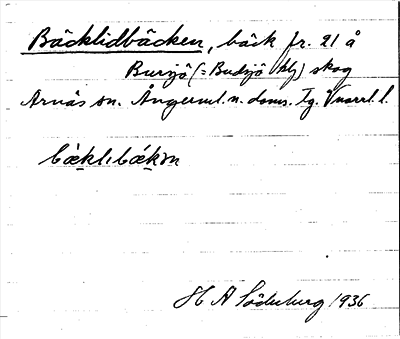 Bäcklidbäcken, bäck fr. 21 å
Bursjö (= Budsjö hlj) skog
Arnäs sn. Ångerml. n. doms. Tg. Vnorrl. l.
bæ̀klɩbækən
H A Söderberg 1936